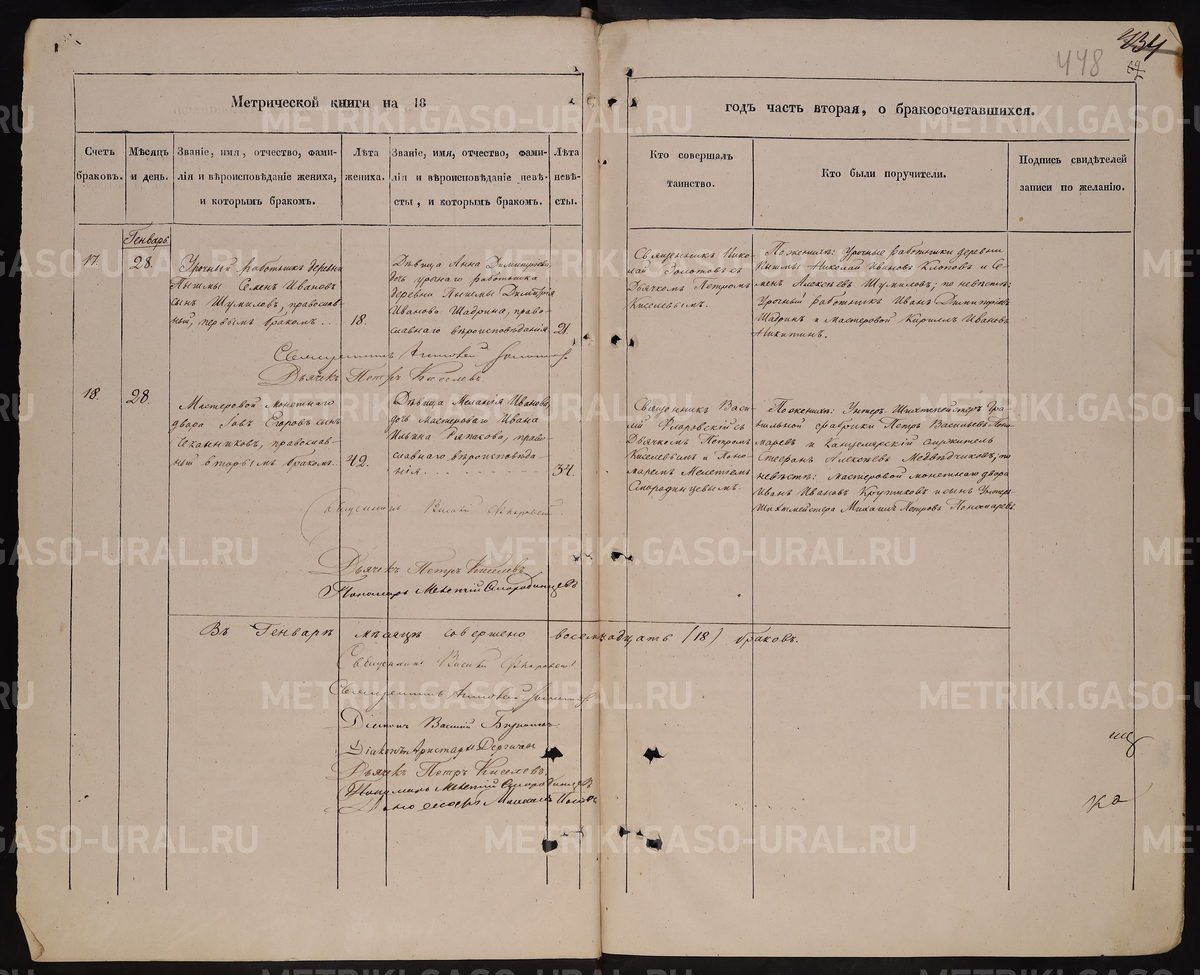 434
448
Метрической книги на 18
годъ часть вторая, о бракосочетавшихся.
Счетъ браковъ.
Мѣсяцъ и день.
Званіе, имя, отчество, фами-
лія и вѣроисповѣданіе жениха,
и которымъ бракомъ.
Лѣта
жениха.
Званіе, имя, отчество, фами-
лія и вѣроисповѣданіе невѣ-
сты, и которымъ бракомъ.
Лѣта
невѣ-
сты.
Кто совершалъ
таинство.
Кто были поручители.
Подпись свидѣтелей
записи по желанію.
Генварь
17.
28.
Урочный работникъ деревни
Пышмы Семенъ Ивановъ
сынъ Шумиловъ, православ-
ный, первымъ бракомъ...
18.
Дѣвица Анна Димитріева,
дочь урочнаго работника
деревни Пышмы Димитрія
Иванова Шадрина, право-
славнаго вѣроисповѣданія.
21
Священникъ Нико-
лай Золотовъ съ
Дьячкомъ Петромъ
Киселевымъ.
По женихѣ: Урочные работники деревни
Пышмы Николай Ивановъ Клоповъ и Се-
менъ Алексѣевъ Шумиловъ; по невѣстѣ:
Урочный работникъ Иванъ Димитріевъ
Шадринъ и мастеровой Кириллъ Ивановъ
Никитинъ.
Священникъ
Дьячекъ Петръ Киселевъ
18.
28.
Мастеровой монетнаго
двора Іовъ Егоровъ сынъ
православ-
ный вторымъ бракомъ.
42.
Дѣвица Меланія Иванова,
дочь мастероваго Ивана
Ильина право-
славнаго вѣроисповѣда-
нія.
34
Священникъ Васи-
лій Флоровскій съ
Дьячкомъ Петромъ
Киселевымъ и Поно-
маремъ Мелетіемъ
Смородинцевымъ.
По женихѣ: Унтеръ Шихтмейстеръ Гра-
нильной фабрики Петръ Васильевъ Поно-
маревъ и Канцелярскій служитель
Стефанъ Алексѣевъ Медвѣдчиковъ; по
невѣстѣ: мастеровой монетнаго двора
Иванъ Ивановъ Крутиковъ и сынъ Унтеръ
Шихтмейстера Михаилъ Петровъ Пономаревъ
Священникъ Василій Флоровскій.
Дьячекъ Петръ Киселевъ
Пономарь Мелетій Смородинцевъ
Въ Генварѣ мѣсяцѣ совершено восемнадцать (18) браковъ.
Священникъ Василій Флоровскій
Священникъ
Діаконъ Василій
Діаконъ Аристархъ
Дьячекъ Петръ Киселевъ.
Пономарь Мелетій Смородинцевъ
METRIKI.GASO-URAL.RU